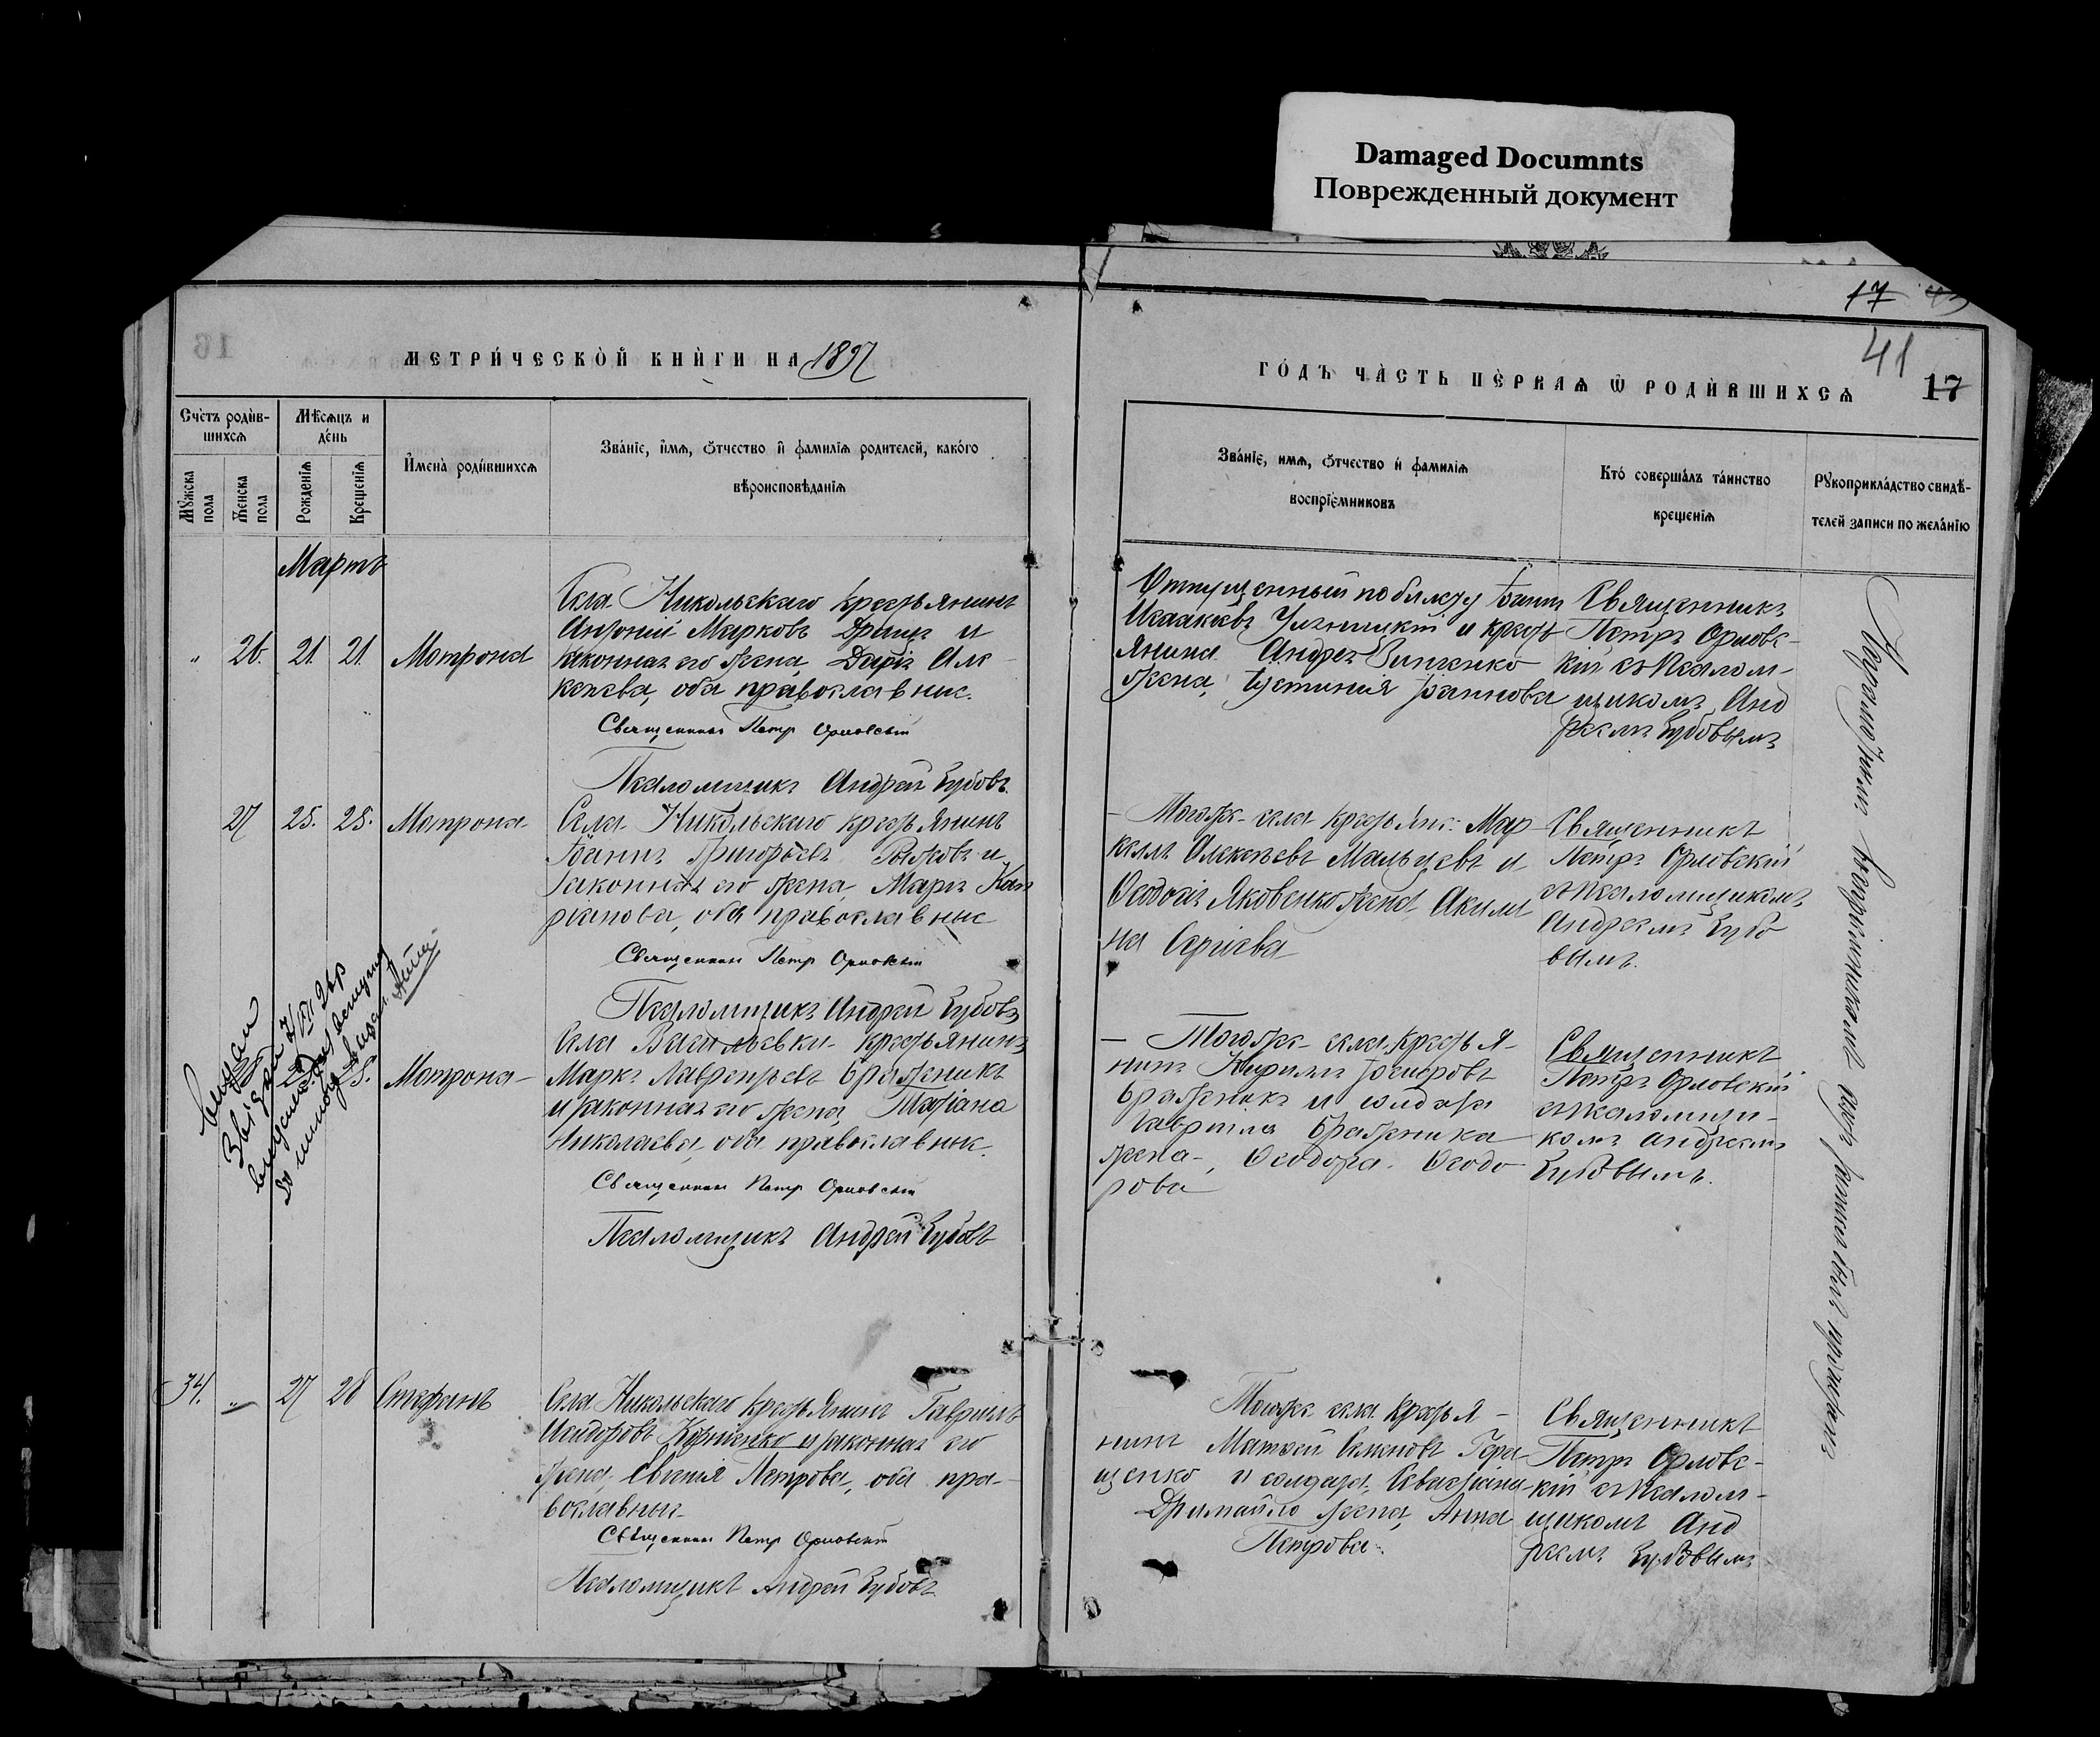 Damaged Documnts
Поврежденный документ
17
41
17
МЕТРИ́ЧЕСКО̀Й КНЍГИ НА 1897
ГО́ДЪ ЧА̀СТЬ ПЀРВАѦ Ѡ҆ РОДЍВШИХСѦ
Сче́тъ роди̂в-
шихсѧ
Мѣ́сѧцъ и
де́нь
Мꙋ́жска
пола
Же́нска
пола
Рожденїѧ
Креще́нїѧ
И҆мена̀ роди́вшихсѧ
Зва́нїе, и҆́мѧ, ѻ҆́тчество и҆ фами́лїѧ родителей, како́гѡ
вѣроисповѣ́данїѧ
Зва́нїе, имѧ, ѻ҆́тчество и҆ фами́лїѧ
воспрїе́мниковъ
Кто́ соверша́лъ та́инство
креще́нїѧ
Рꙋкоприкла́дство свидѣ́-
телей записи по жела́нїю
Мартъ
" 26. 21. 21. Матрона
Села Никольскаго крестьянинъ
Антоній Марковъ и
законная его жена Дарія Але-
ксѣева, оба православные.
Священникъ Петръ Орловскій
Псаломщикъ Андрей Зубовъ.
Отпущенный по билету Іоаннъ
Исаакіевъ и кресть
янина Андрея Винченко
жена, Іустинія Іоаннова
Священникъ
Петръ Орловс-
кій съ псалом-
щикомъ Анд
реемъ Зубовымъ
27 25. 25. Матрона
Села Никольскаго крестьянинъ
Іоаннъ Григорьевъ Рыжовъ и
законная его жена, Марія Кип
ріанова, оба православные
Священникъ Петръ Орловскій
Псаломщикъ Андрей Зубовъ
Тогоже села крестьян: Мар-
келлъ Алексѣевъ Мальцевъ и
Ѳеодосія Яковенко жена, Акили
на Сергіева
Священникъ
Петръ Орловскій
съ псаломщикомъ
Андреемъ Зубо
вымъ.
Матрона
Села Васильевки крестьянинъ
Маркъ Лаврентьевъ Бражникъ
и законная его жена, Татіана
Николаева, оба православные.
Священникъ Петръ Орловскій
Псаломщикъ Андрей Зубовъ
Тогоже села крестья-
нинъ Кириллъ
Бражникъ и солдата
Гавриила Бражника
жена, Ѳеодора Ѳеодо
рова
Священникъ
Петръ Орловскій
съ псаломщи-
комъ Андреемъ
Зубовымъ.
34. " 27 28 Стефанъ
Села Никольскаго крестьянинъ Гавріилъ
Исидоровъ Корніенко и законная его
жена, Евгенія Петрова, оба пра-
вославные
Священникъ Петръ Орловскій
Псаломщикъ Андрей Зубовъ
Тогоже села крестья-
нинъ Матвей Семеновъ Гера
щенко и солдата Севастіана
Дримайло жена, Анна
Петрова.
Священникъ
Петръ Орловс-
кій съ псалом-
щикомъ Анд
реемъ Зубовымъ